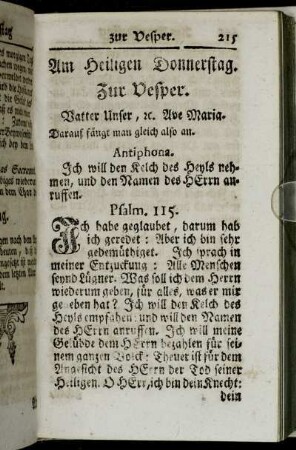 zur Vesper. 215
Am Heiligen Donnerstag.
Zur Vesper.
Vatter Unser, ꝛc. Ave Maria.
Darauf fängt man gleich also an.
Antiphona.
Ich will den Kelch des Heyls neh-
men, und den Namen des HErrn an-
ruffen.
Psalm. 115.
Ich habe geglaubet, darum hab
ich geredet: Aber ich bin sehr
gedemüthiget. Ich sprach in
meiner Entzuckung: Alle Menschen
seynd Lügner. Was soll ich dem Herrn
wiederum geben, für alles, was er mir
gegeben hat? Ich will den Kelch des
Heyls empfahen: und will den Namen
des HErrn anruffen. Ich will meine
Gelübde dem HErrn bezahlen für sei-
nem gantzen Volck: Theuer ist für dem
Angesicht des HErrn der Tod seiner
Heiligen. O HErr, ich bin dein Knecht:
dein